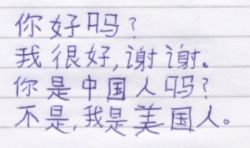 你好吗？
我很好，谢谢。
你是中国人吗？
不是，我是美国人。